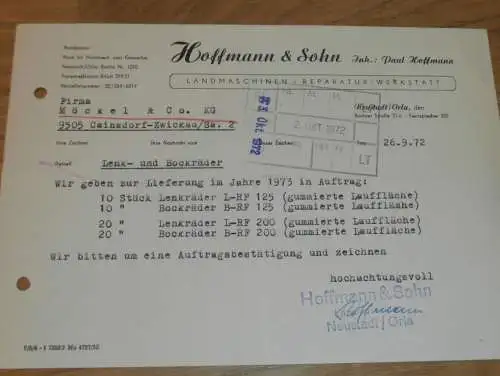 Hoffmann & Sohn Inh.: Paul Hoffmann
LANDMASCHINEN - REPARATUR-WERKSTATT
Firma
Möckel & Co. KG
9505 Cainsdorf-Zwickau/Sa. 2
Neustadt/Orla, den
2. OKT 1972
OKT. 1972
LT
26.9.72
Betreff
Lenk- und Bockräder
Wir geben zur Lieferung im Jahre 1973 in Auftrag:
10 Stück Lenkräder L-RF 125 (gummierte Lauffläche)
10 " Bockräder B-RF 125 (gummierte Lauffläche)
20 " Lenkräder L-RF 200 (gummierte Lauffläche)
20 " Bockräder B-RF 200 (gummierte Lauffläche)
Wir bitten um eine Auftragsbestätigung und zeichnen
hochachtungsvoll
Hoffmann & Sohn
Hoffmann
Neustadt / Orla